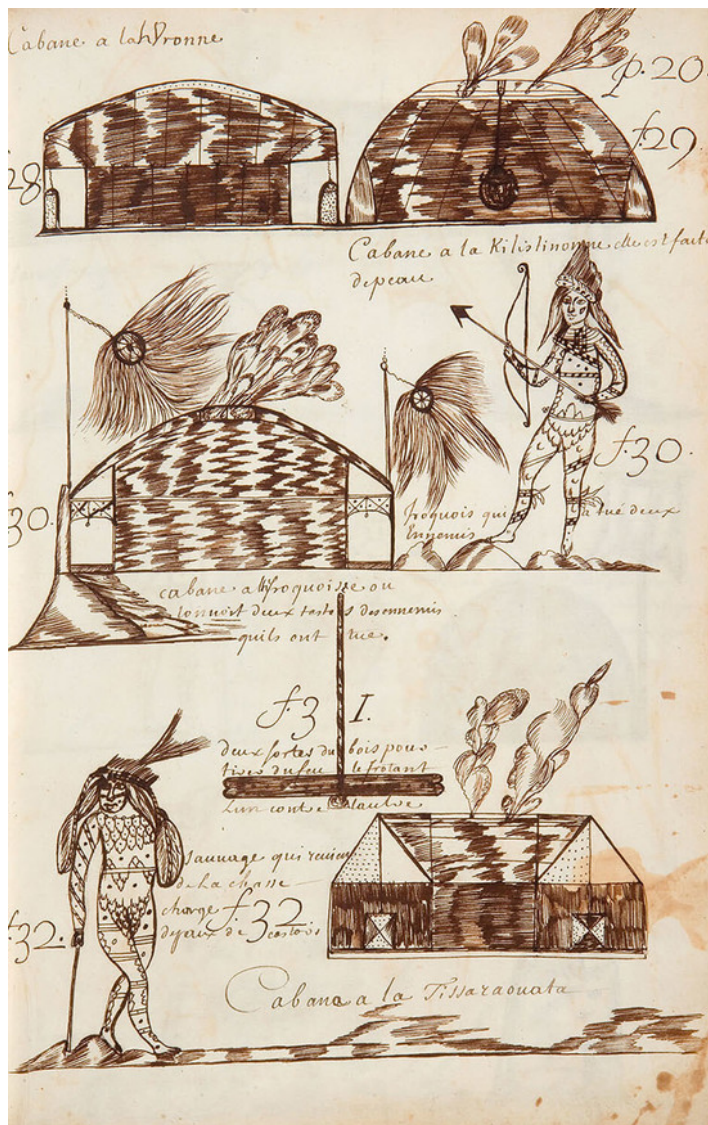 Cabane a la hVronne
p. 20.
28
f.29
Cabane a la Kilistinonne elle est faite
depeau
f.30.
Iroquois qui a tué deux
Ennemis
30.
cabane a lIroquoisze ou
lonuoit deux testes desennemis
quils ont tue.
f.3 I.
deux sortes du bois pour
tirer du feu le frotant
Lun contre Laultre
sauuage qui reuien
de La chasse
charge f.32
f32. depaux de castors
Cabana a la Tissaraouata